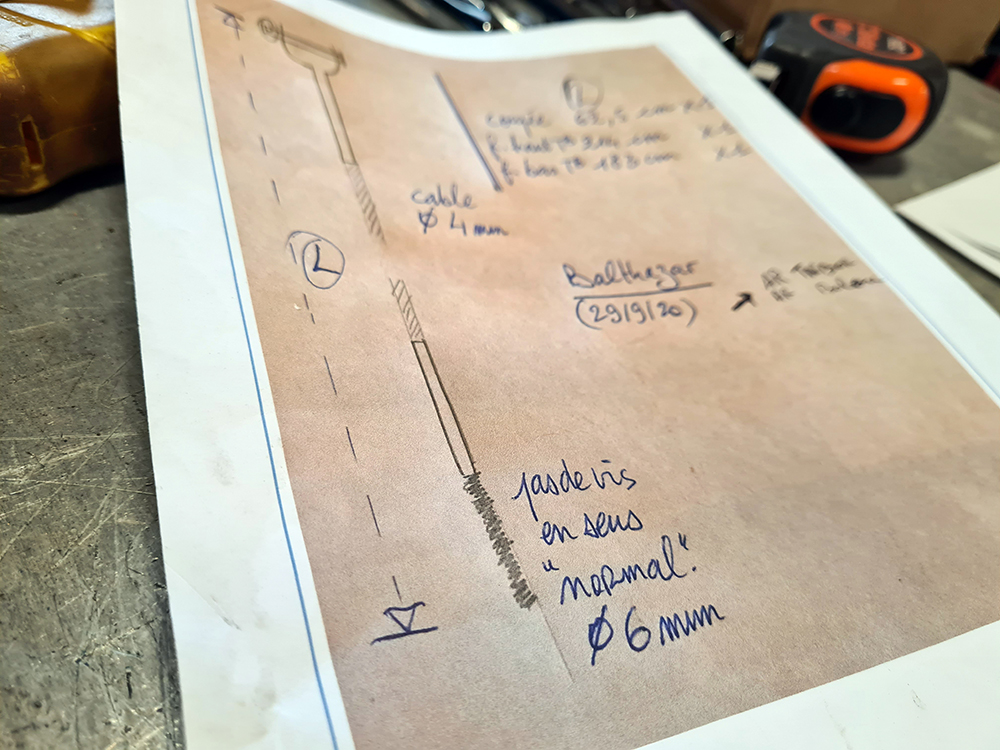 L
coupée 62,5 cm
cm
183 cm
cable
Ø 4 mm
L
Balthazar
(29/9/20)
pas de vis
en sens
"normal".
Ø 6 mm